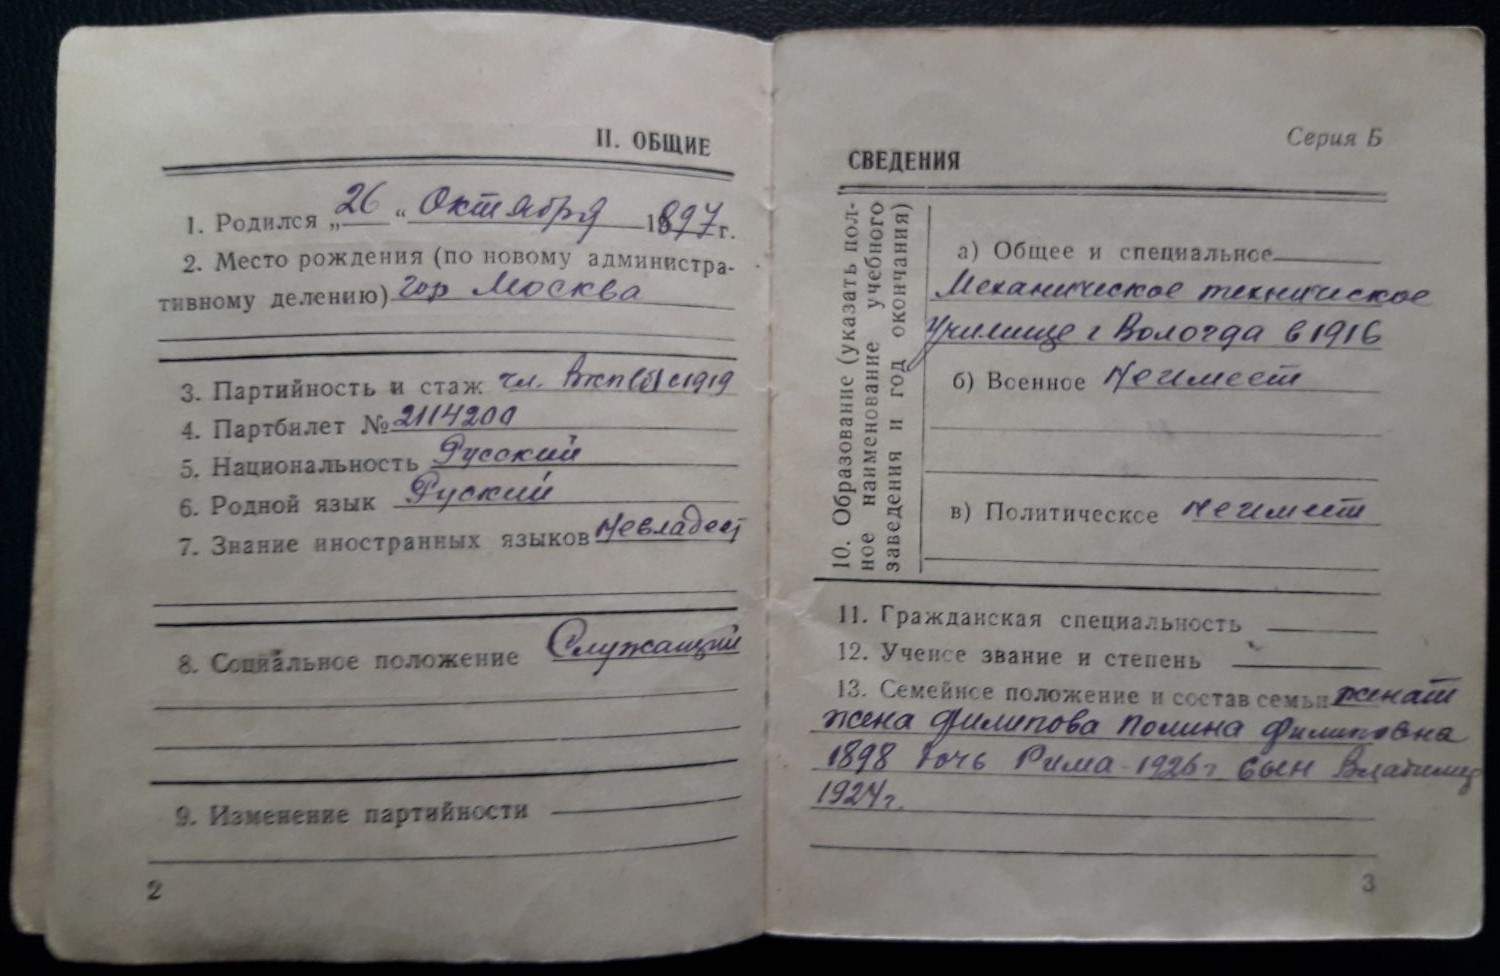 II. ОБЩИЕ
1. Родился „26“ Октября 1897 г.
2. Место рождения (по новому администра-
тивному делению) гор Москва
3. Партийность и стаж чл. Вкп(б) с 1919
4. Партбилет № 2114200
5. Национальность Русский
6. Родной язык Руский
7. Знание иностранных языков невладеет
8. Социальное положение Служащий
9. Изменение партийности
2
Серия Б
СВЕДЕНИЯ
10. Образование (указать пол-
ное наименование учебного
заведения и год окончания)
а) Общее и специальное
Механическое техническое
Училище г Вологда в 1916
б) Военное неимеет
в) Политическое неимеет
11. Гражданская специальность
12. Ученое звание и степень
13. Семейное положение и состав семьи женат
жена Филипова Полина Филиповна
1898 дочь Рима 1926 г сын Владимир
1924 г.
3